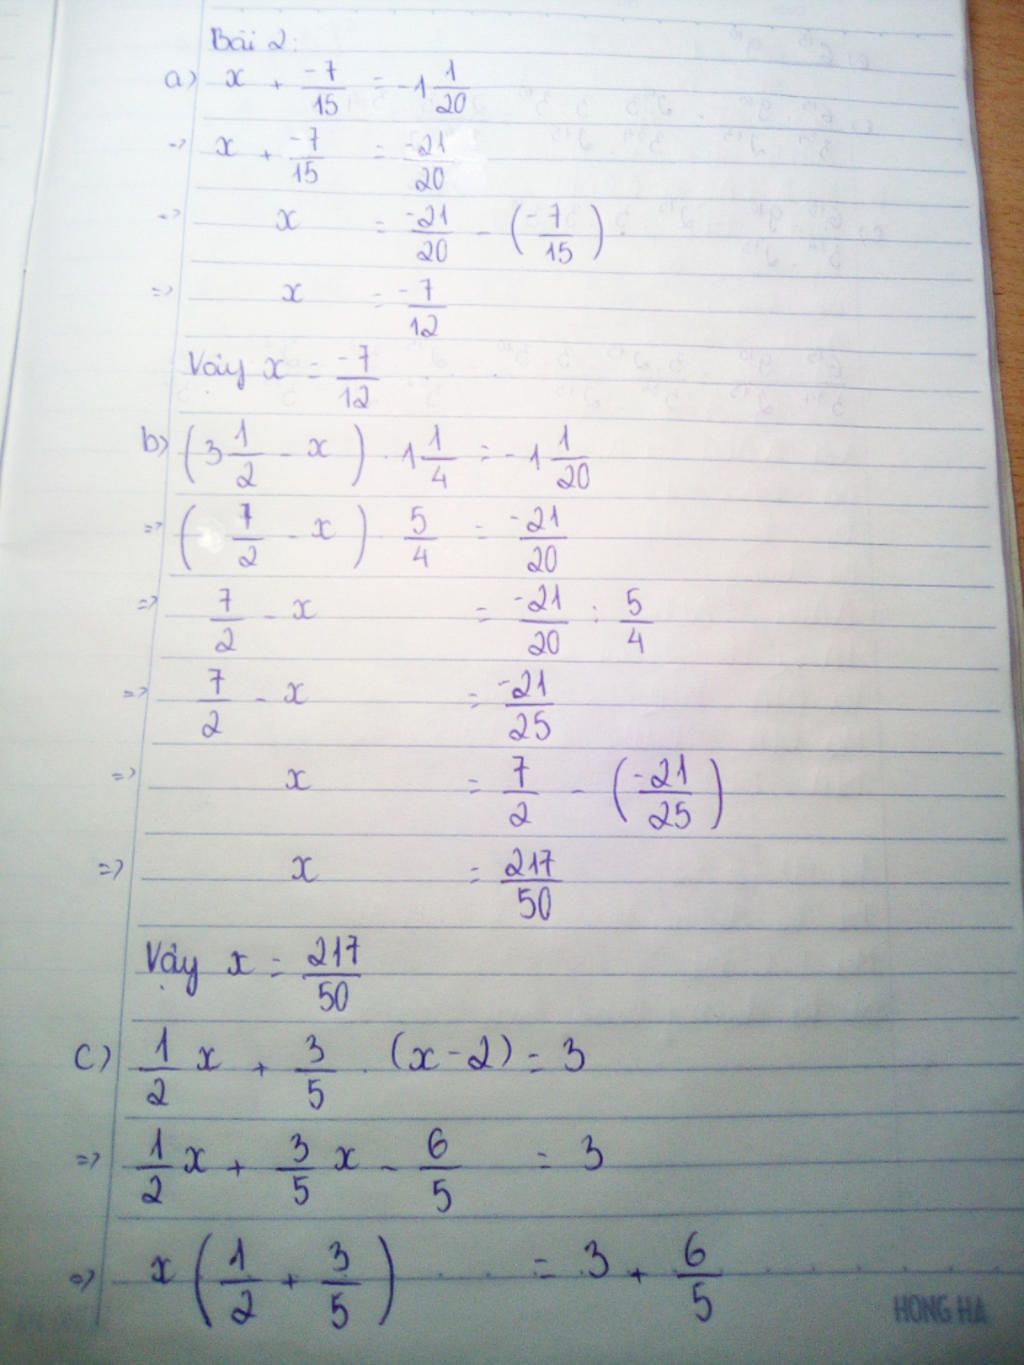 Bài 2:
a) x + -7/15 = -1 1/20
=> x + -7/15 = -21/20
=> x = -21/20 - (-7/15)
=> x = -7/12
Vậy x = -7/12
b) (3 1/2 - x) . 1 1/4 = -1 1/20
=> (7/2 - x) . 5/4 = -21/20
=> 7/2 - x = -21/20 : 5/4
=> 7/2 - x = -21/25
=> x = 7/2 - (-21/25)
=> x = 217/50
Vậy x = 217/50
c) 1/2 x + 3/5 . (x - 2) = 3
=> 1/2 x + 3/5 x - 6/5 = 3
=> x (1/2 + 3/5) = 3 + 6/5
HONG HA